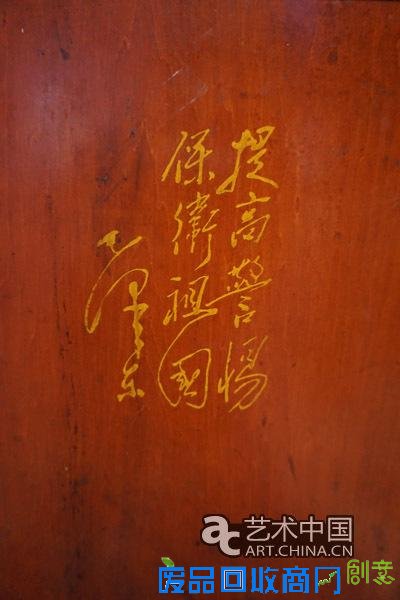 提高警惕
保衛祖國
毛泽东
ac 艺术中国
ART.CHINA.CN
創意
废品回收商网